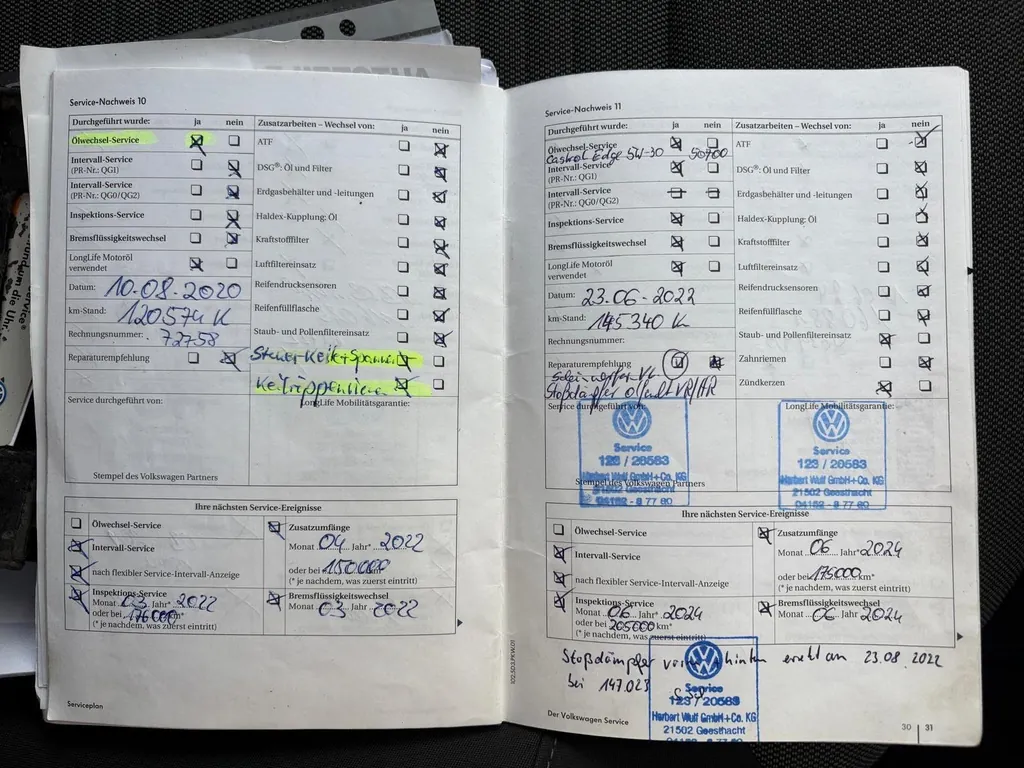 Service-Nachweis 10
Durchgeführt wurde: ja nein
Ölwechsel-Service
Intervall-Service
(PR-Nr.: QG1)
Intervall-Service
(PR-Nr.: QG0/QG2)
Inspektions-Service
Bremsflüssigkeitswechsel
LongLife Motoröl
verwendet
Datum: 10.08.2020
km-Stand: 120574 K
Rechnungsnummer: 72758
Reparaturempfehlung
Zusatzarbeiten – Wechsel von: ja nein
ATF
DSG®: Öl und Filter
Erdgasbehälter und -leitungen
Haldex-Kupplung: Öl
Kraftstofffilter
Luftfiltereinsatz
Reifendrucksensoren
Reifenfüllflasche
Staub- und Pollenfiltereinsatz
Keilrippenriemen
Service durchgeführt von:
LongLife Mobilitätsgarantie:
Stempel des Volkswagen Partners
Ihre nächsten Service-Ereignisse
Ölwechsel-Service
Intervall-Service
nach flexibler Service-Intervall-Anzeige
Inspektions-Service
Monat 03 Jahr* 2022
oder bei 176000 km*
(* je nachdem, was zuerst eintritt)
Zusatzumfänge
Monat 04 Jahr* 2022
oder bei 150000 km*
(* je nachdem, was zuerst eintritt)
Bremsflüssigkeitswechsel
Monat 03 Jahr 2022
Serviceplan
Service-Nachweis 11
Durchgeführt wurde: ja nein
Ölwechsel-Service
Castrol Edge 5W-30 50700
Intervall-Service
(PR-Nr.: QG1)
Intervall-Service
(PR-Nr.: QG0/QG2)
Inspektions-Service
Bremsflüssigkeitswechsel
LongLife Motoröl
verwendet
Datum: 23.06-2022
km-Stand: 145340 K
Rechnungsnummer:
Reparaturempfehlung
Stoßdämpfer
Zusatzarbeiten – Wechsel von: ja nein
ATF
DSG®: Öl und Filter
Erdgasbehälter und -leitungen
Haldex-Kupplung: Öl
Kraftstofffilter
Luftfiltereinsatz
Reifendrucksensoren
Reifenfüllflasche
Staub- und Pollenfiltereinsatz
Zahnriemen
Zündkerzen
Service durchgeführt von:
Service
123 / 20583
Herbert Wulf GmbH+Co. KG
21502 Geesthacht
04152 - 8 77 80
Stempel des Volkswagen Partners
LongLife Mobilitätsgarantie:
Service
123 / 20583
Herbert Wulf GmbH+Co. KG
21502 Geesthacht
04152 - 8 77 80
Ihre nächsten Service-Ereignisse
Ölwechsel-Service
Intervall-Service
nach flexibler Service-Intervall-Anzeige
Inspektions-Service
Monat 06 Jahr* 2024
oder bei 205000 km*
(* je nachdem, was zuerst eintritt)
Zusatzumfänge
Monat 06 Jahr* 2024
oder bei 175000 km*
(* je nachdem, was zuerst eintritt)
Bremsflüssigkeitswechsel
Monat 06 Jahr 2024
Stoßdämpfer hinten 23.08.2022
bei 147.023
Service
123 / 20583
Herbert Wulf GmbH+Co. KG
21502 Geesthacht
102.5D3.PKW.01
Der Volkswagen Service
30 | 31